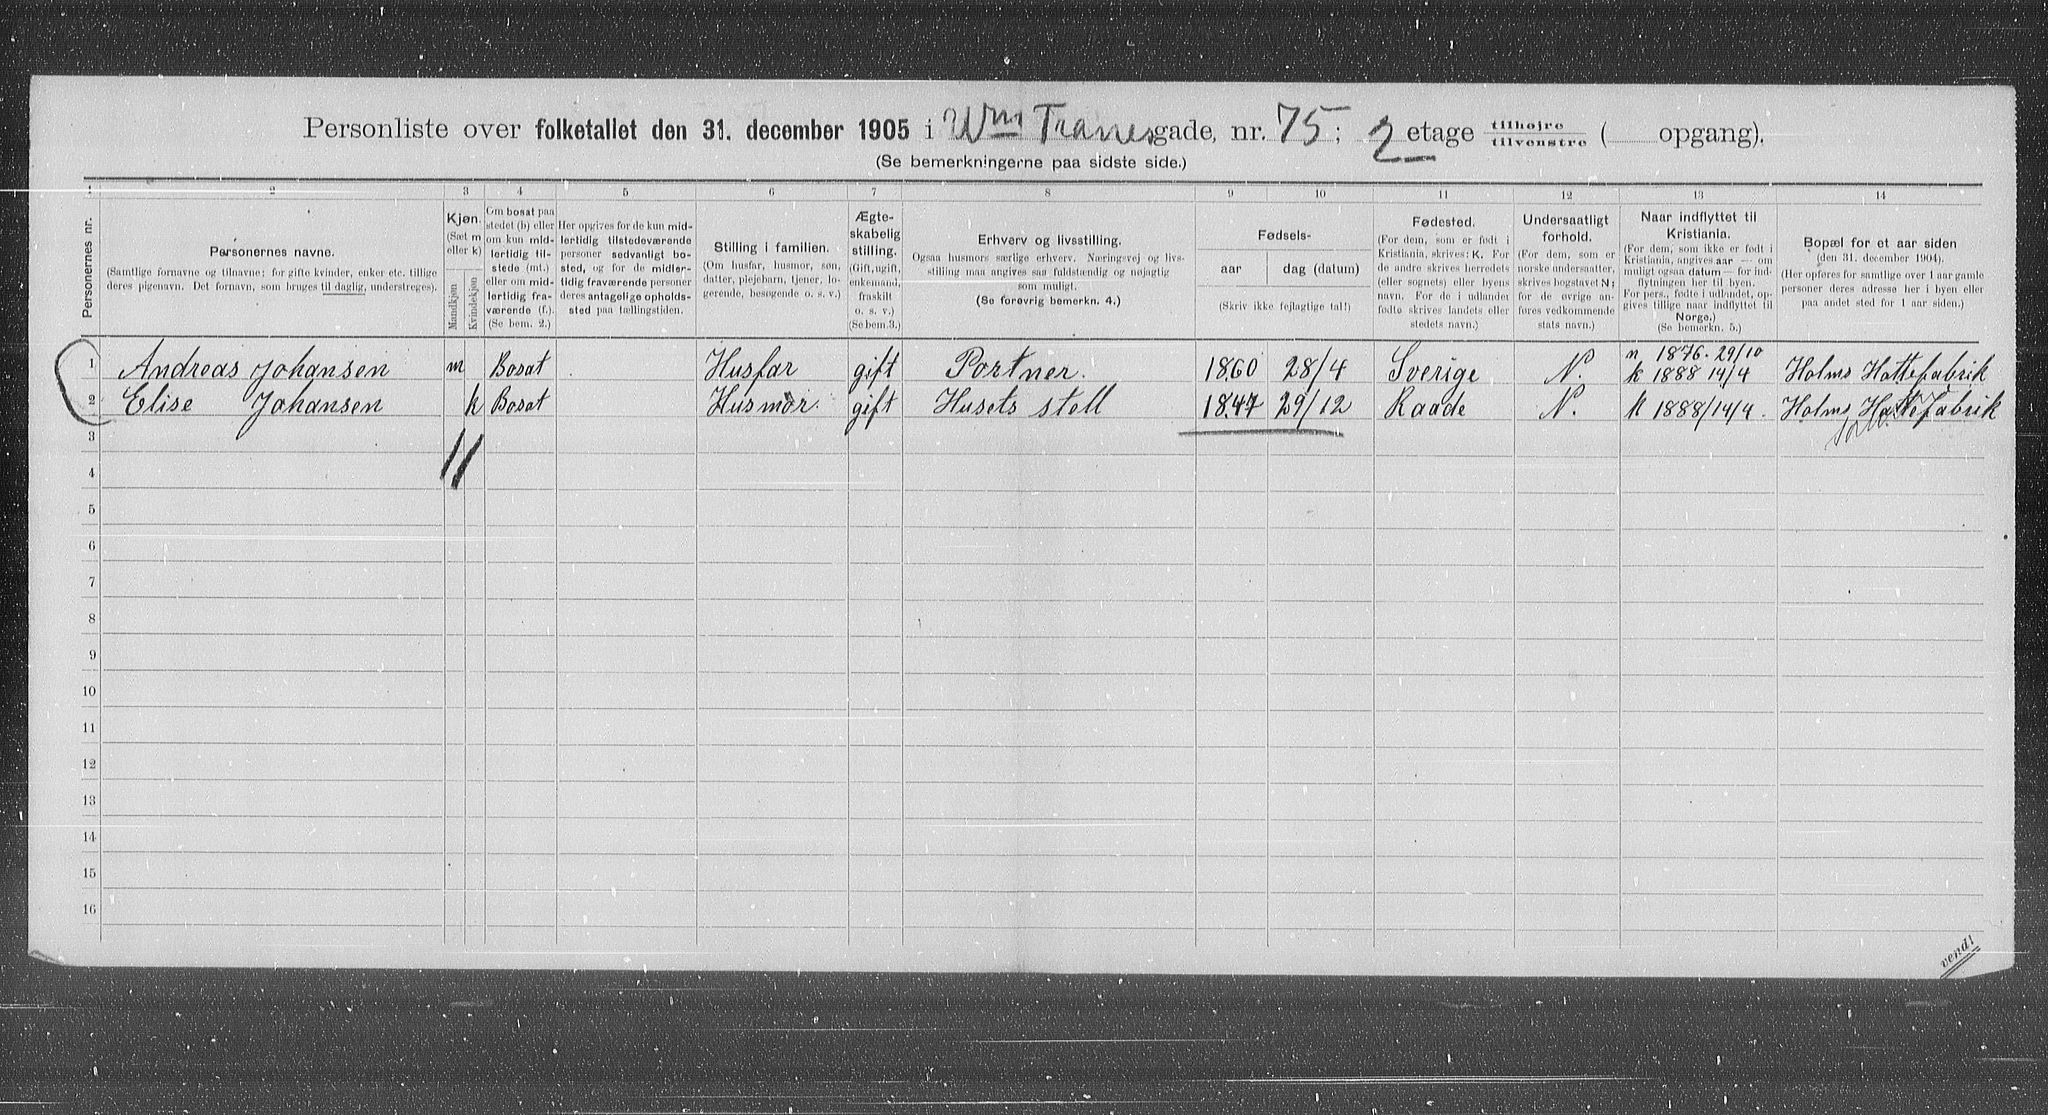 Personliste over folketallet den 31. december 1905 i Wm Tranesgade, nr. 75; 2 etage tilhøjre tilvenstre ( opgang).
(Se bemerkningerne paa sidste side.)
1 2 3 4 5 6 7 8 9 10 11 12 13 14
Personernes nr.
Personernes navne.
(Samtlige fornavne og tilnavne; for gifte kvinder, enker etc. tillige
deres pigenavn. Det fornavn, som bruges til daglig, understreges).
Kjøn.
(Sæt m
eller k)
Mandkjøn
Kvindekjøn
Om bosat paa
stedet (b) eller
om kun mid-
lertidig til-
stede (mt.)
eller om mid-
lertidig fra-
værende (f.).
(Se bem. 2.)
Her opgives for de kun mid-
lertidig tilstedeværende
personer sedvanligt bo-
sted, og for de midler-
tidig fraværende personer
deres antagelige opholds-
sted paa tællingstiden.
Stilling i familien.
(Om husfar, husmor, søn,
datter, plejebarn, tjener, lo-
gerende, besøgende o. s. v.)
Ægte-
skabelig
stilling.
(Gift, ugift,
enkemand,
fraskilt
o. s. v.)
(Se bem.3.)
Erhverv og livsstilling.
Ogsaa husmors særlige erhverv. Næringsvej og livs-
stilling maa angives saa fuldstændig og nøjagtig
som muligt.
(Se forøvrig bemerkn. 4.)
Fødsels-
aar
dag (datum)
(Skriv ikke fejlagtige tal!)
Fødested.
(For dem, som er født i
Kristiania, skrives: K. For
de andre skrives herredets
(eller sognets) eller byens
navn. For de i udlandet
fødte skrives landets eller
stedets navn.)
Undersaatligt
forhold.
(For dem, som er
norske undersaatter,
skrives bogstavet N;
for de øvrige an-
føres vedkommende
stats navn.)
Naar indflyttet til
Kristiania.
(For dem, som ikke er født i
Kristiania, angives aar — om
muligt ogsaa datum — for ind-
flytningen her til byen.
For pers., fødte i udlandet, op-
gives tillige naar indflyttet til
Norge.)
(Se bemerkn. 5.)
Bopæl for et aar siden
(den 31. december 1904).
(Her opføres for samtlige over 1 aar gamle
personer deres adresse her i byen eller
paa andet sted for 1 aar siden.)
1 Andreas Johansen m Bosat Husfar gift Portner. 1860 28/4 Sverige N. n 1876. 29/10 k 1888 14/4 Holms Hattefabrik
2 Elise Johansen k Bosat Husmor. gift Husets stell 1847 29/12 Raade N. k 1888/14/4. Holms Hattefabrik
3
4
5
6
7
8
9
10
11
12
13
14
15
16
vend!